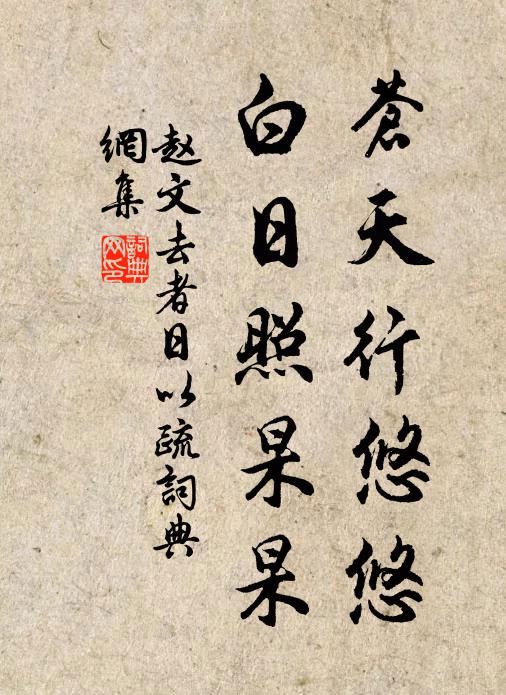 蒼天行悠悠
白日照杲杲
赵文去者日以疏詞典
網集
詞典
网印